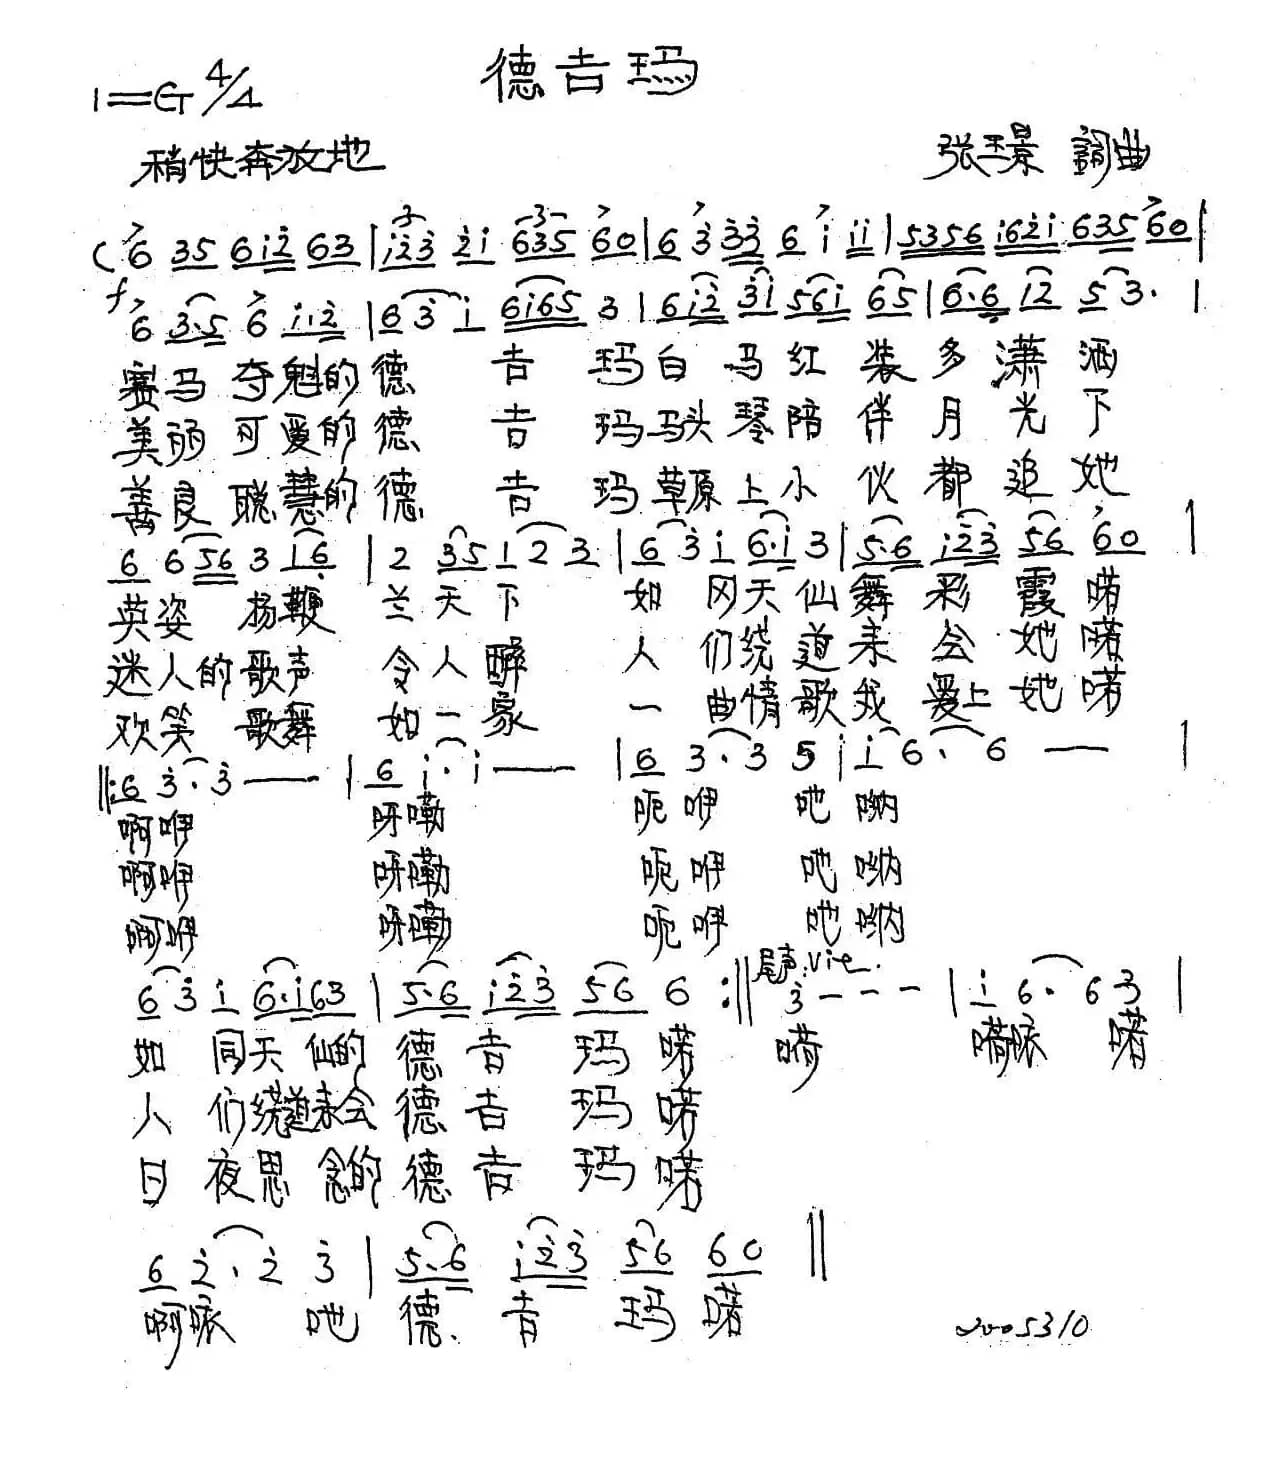 德吉玛
1=G 4/4
稍快奔放地
张玉景 詞曲
(6 35 6i2 63 | i23 2i 635 60 | 6 3 33 6 i ii | 5356 i62i 635 60 |
f
6 3.5 6 i.2 | 6 3 i 6i65 3 | 6i2 3i 56i 65 | 6.6 12 5 3. |
赛马夺魁的德吉玛白马红装多潇洒
美丽可爱的德吉玛马头琴陪伴月光下
善良聪慧的德吉玛草原上小伙都追她
6 6 56 3 16 | 2 35 1 2 3 | 6 3 i 6.i 3 | 5.6 i23 56 60 |
英姿扬鞭兰天下如冈天仙舞彩霞喏
迷人的歌声令人醉人们绕道来会她喏
欢笑歌舞如一家一曲情歌我爱上她喏
‖:6 3.3 — | 6 i.i — | 6 3.3 5 | i 6.6 — |
啊咿呀嘞呃咿吔呐
啊咿呀嘞呃咿吔呐
啊咿呀嘞呃咿吔呐
尾声:
6 3 i 6.i63 | 5.6 i23 56 6 :‖ 3 - - - | i 6. 6 3 |
如同天仙的德吉玛喏嗬嗬咴喏
人们绕道来会德吉玛喏
日夜思念的德吉玛喏
6 2.2 3 | 5.6 i23 56 60 ‖
啊咴吔德吉玛喏
2005310